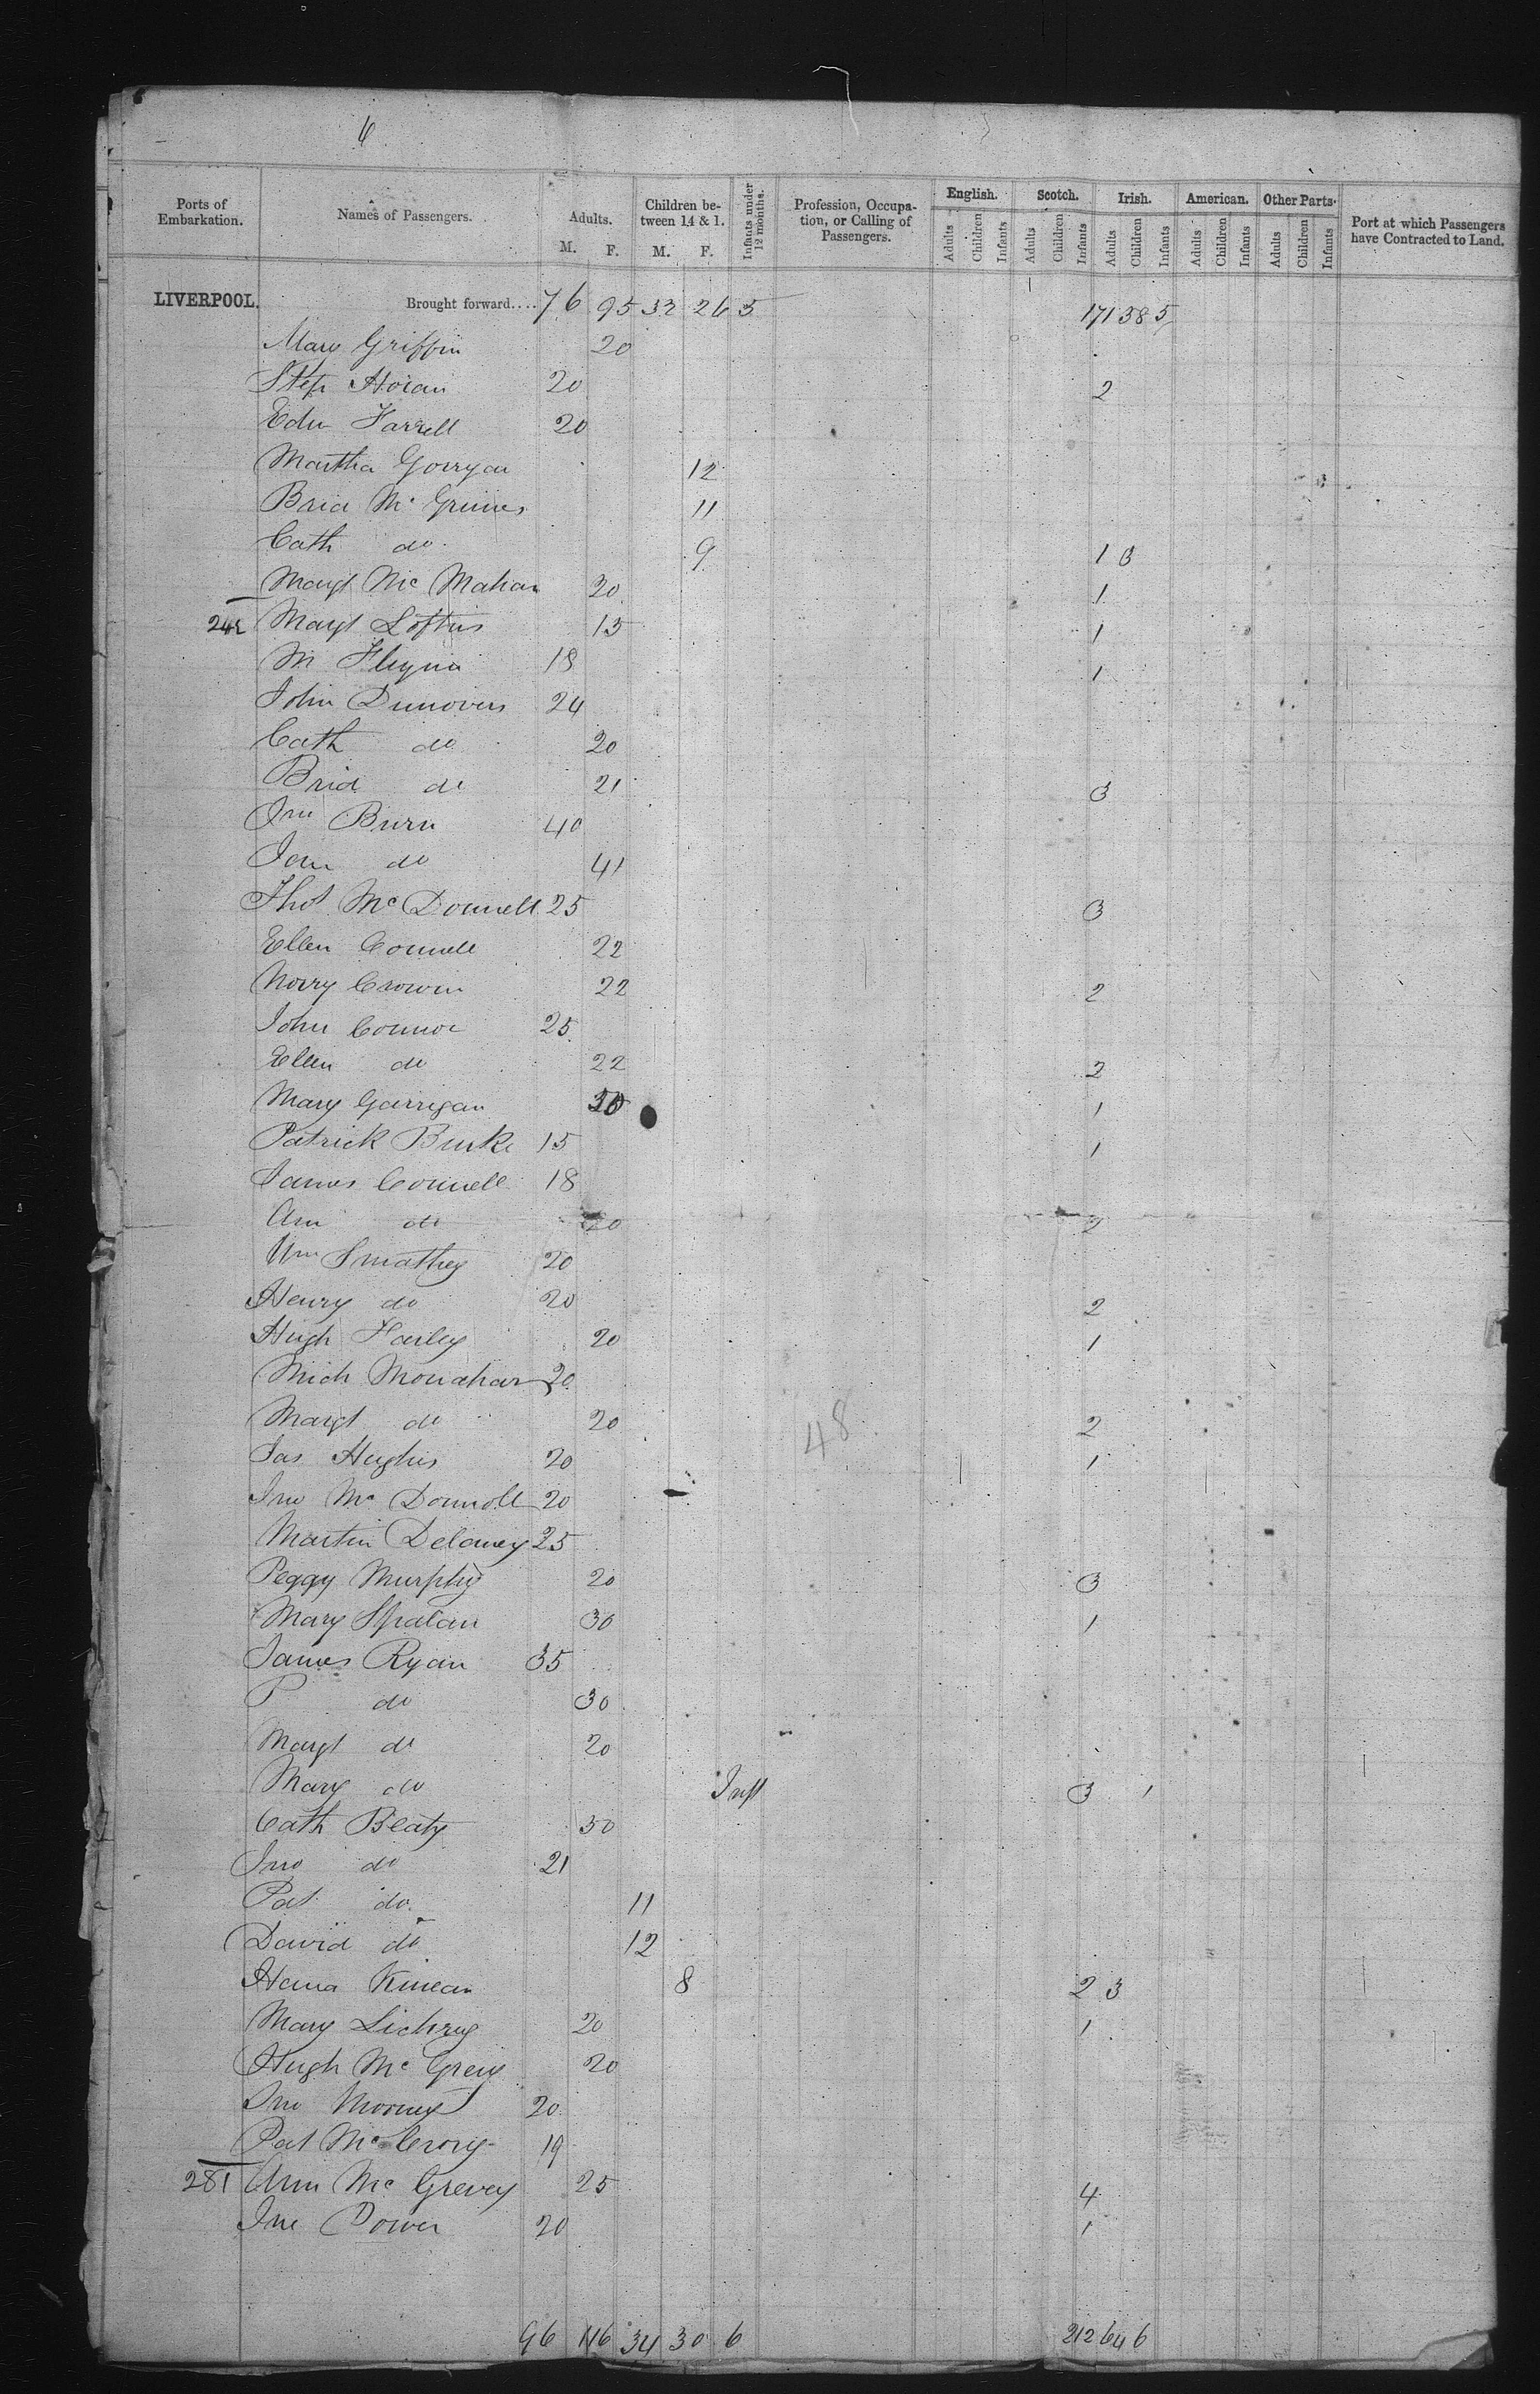 6
Ports of Embarkation. Names of Passengers. Adults. M. F. Children between 14 & 1. M. F. Infants under 12 months. Profession, Occupation, or Calling of Passengers. English. Adults Children Infants Scotch. Adults Children Infants Irish. Adults Children Infants American. Adults Children Infants Other Parts. Adults Children Infants Port at which Passengers have Contracted to Land.
LIVERPOOL. Brought forward.... 76 95 32 26 5 171 58 5
Mary Griffin 20
Step Horan 20 2
Edw Farrell 20
Martha Gorryan 12
Brid Mc Grimes 11
Cath do 9 1 3
Margt Mc Mahan 20 1
242 Margt Loftus 15 1
M Flynn 18 1
John Dunovers 24
Cath do 20
Brid do 21 3
Jno Burn 40
Jan do 41
Thos McDonnell 25 3
Ellen Connell 22
Norry Crowin 22 2
John Connor 25
Ellen do 22 2
Mary Garrigan 30 1
Patrick Burke 15 1
James Connell 18
Ann do 20 2
Wm Smathey 20
Henry do 20 2
Hugh Farley 20 1
Mich Monahan 20
Margt do 20 2
48
Jas Hughes 20 1
Jno Mc Donnoll 20
Martin Delaney 25
Peggy Murphy 20 3
Mary Spalan 30 1
James Ryan 35
P do 30
Margt do 20
Mary do Inft 3 1
Cath Beaty 50
Jno do 21
Pat do 11
David do 12
Hana Kinean 8 2 3
Mary Lichrey 20 1
Hugh Mc Grevy 20
Jno 20
Pat McCrory 19
281 Ann Mc Grevey 25 4
Jne Power 20 1
96 116 34 30 6 212 64 6